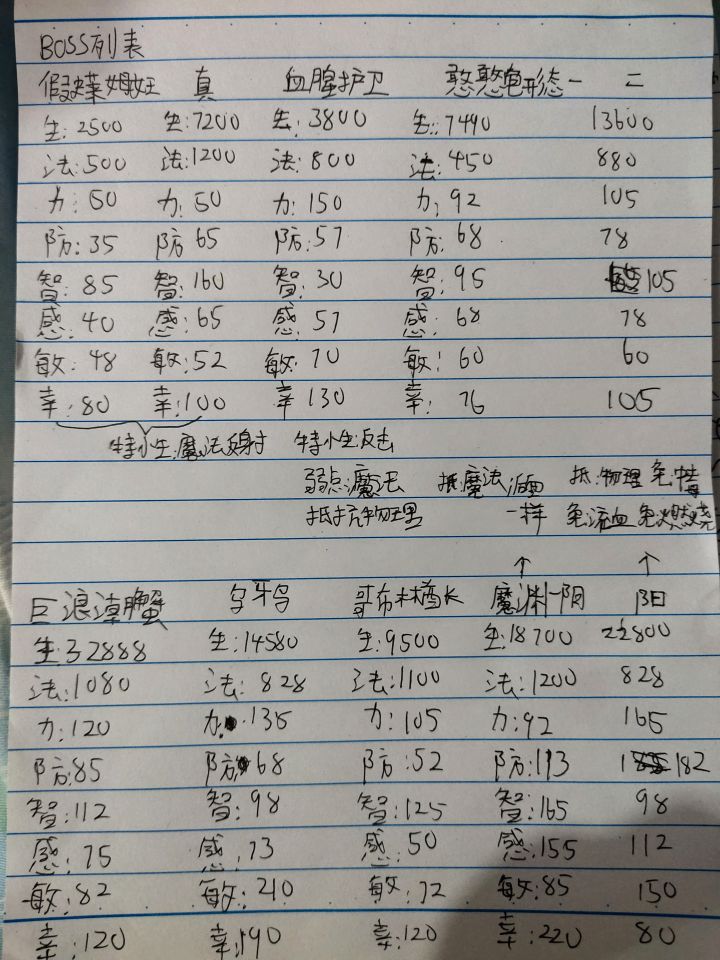 BOSS列表
假史莱姆女王 真 血腥护卫 憨憨龟形态一 二
生:2500 生:7200 生:3800 生:7490 13600
法:500 法:1200 法:800 法:450 880
力:50 力:50 力:150 力:92 105
防:35 防65 防:57 防:68 78
智:85 智:160 智:30 智:95 105
感:40 感:65 感:57 感:68 78
敏:48 敏:52 敏:70 敏:60 60
幸:80 幸:100 幸130 幸:76 105
特性:魔法反射 特性:反击
弱点:魔法 抵:魔法 抵:物理 免毒
抵抗物理 一样 免流血 免燃烧
↑ ↑
巨浪涛蟹 乌牙鸟 哥布林酋长 魔渊-阴 阳
生:32888 生:14580 生:9500 生:18700 22800
法:1080 法:828 法:1100 法:1200 828
力:120 力:135 力:105 力:92 165
防:85 防:68 防:52 防:113 182
智:112 智:98 智:125 智:165 98
感:75 感:73 感:50 感:155 112
敏:82 敏:210 敏:72 敏:85 150
幸:120 幸:190 幸:120 幸:220 80